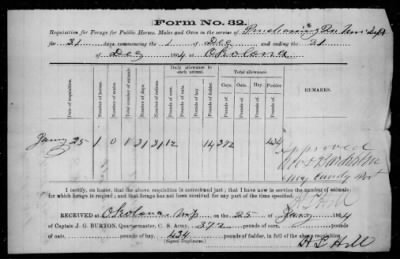 Form No. 32.
Requisition for Forage for Public Horses, Mules and Oxen in the service of Purchasing
for 31 days, commencing the 1 of Dec and ending the 31
of Dec 1864 at Okolona
Daily allowance to each animal. Total allowance.
Date of requisition. Number of horses. Number of mules. Number of oxen. Number of days. Pounds of corn. Pounds of oats. Pounds of hay. Pounds of fodder. Corn. Pounds. Oats. Pounds. Hay. Pounds. Fodder Pounds. REMARKS.
25 1 0 1 31 12 14 372 434
Approved
I certify, on honor, that the above requisition is correct and just; that I have now in service the number of animals
for which forage is required; and that forage has not been received for any part of the time specified.
H. T. Hill
RECEIVED at Okolona Mip on the 25 of 1864
of Captain J. G. BURTON, Quartermaster, C. S. Army, 372 pounds of corn,
pounds of oats, pounds of hay, 434 pounds of fodder, in full of the above requisition.
(Signed Duplicates)
H. T. Hill